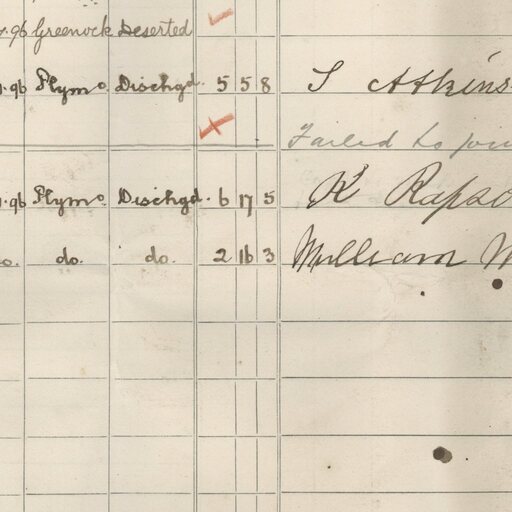 .96 Greenock Deserted
.96 Plymo Dischgd. 5 5 8 S Atkins
Failed to join
.96 Plymo Dischgd. 6 17 5 K Rapso
do. do. do. 2 16 3 William